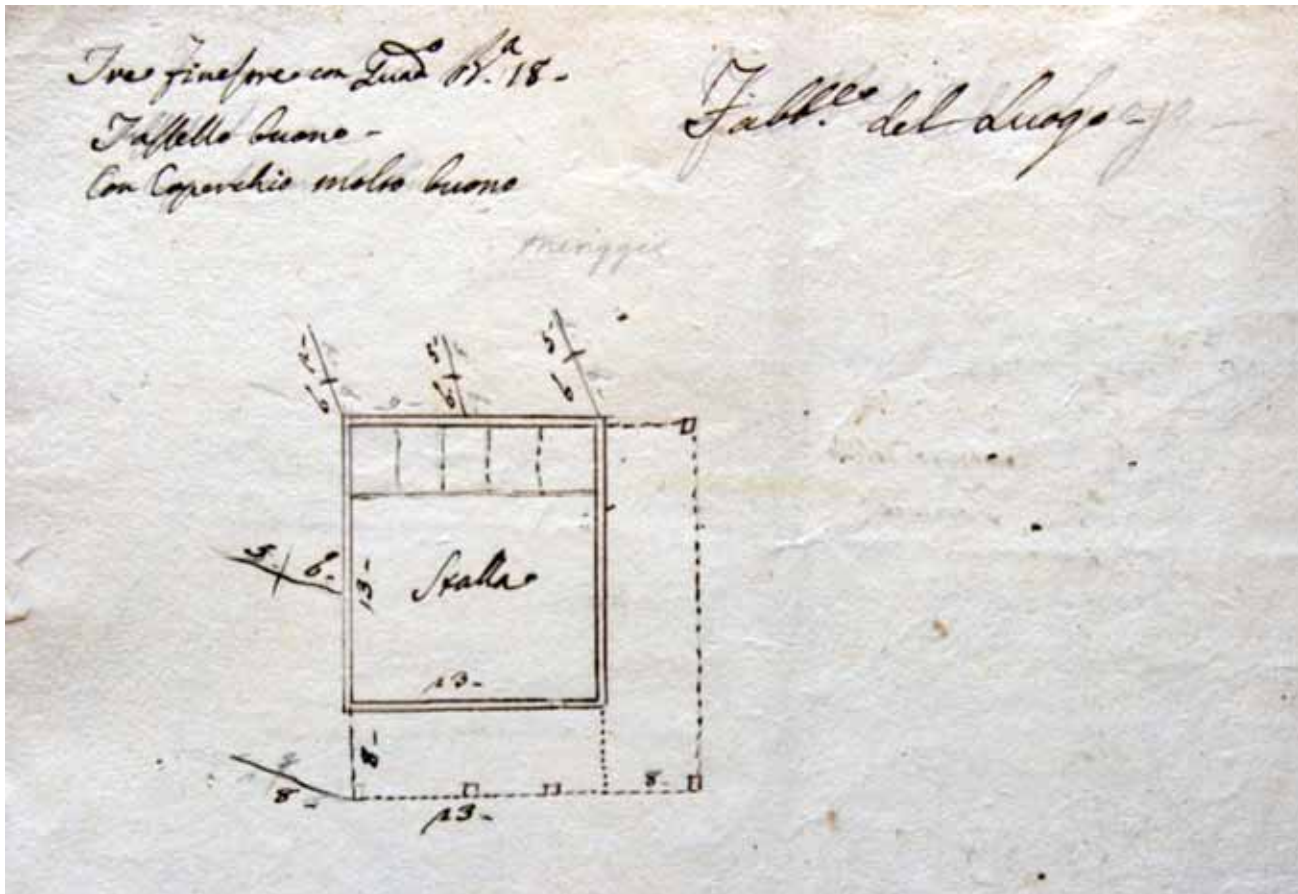 Tre finestre con Quad.º N.ª 18-
Tassello buono-
Con Coperchio molto buono
Fabb.co del Luogo-
meriggio
6 5-
6 5-
3- 6-
13-
Stalla
13-
8-
8-
8-
13-